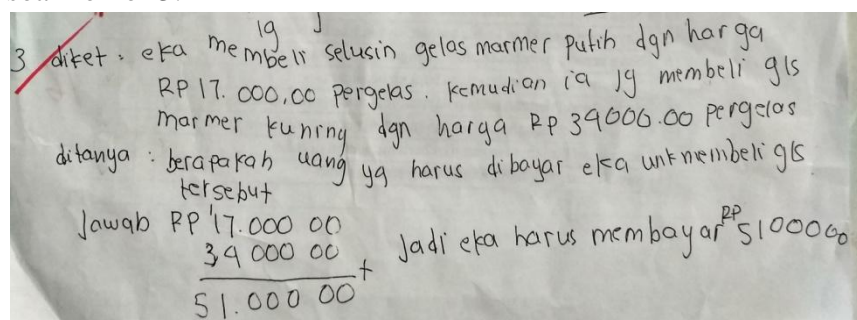 3 diket : eka membeli selusin gelas marmer putih dgn harga
RP 17.000,00 pergelas. kemudian ia jg membeli gls
marmer kuning dgn harga RP 34000.00 pergelas
ditanya : berapakah uang yg harus dibayar eka unt membeli gls
tersebut
Jawab RP 17.000 00
34 000 00 +
51.000 00
Jadi eka harus membayar RP 5100000